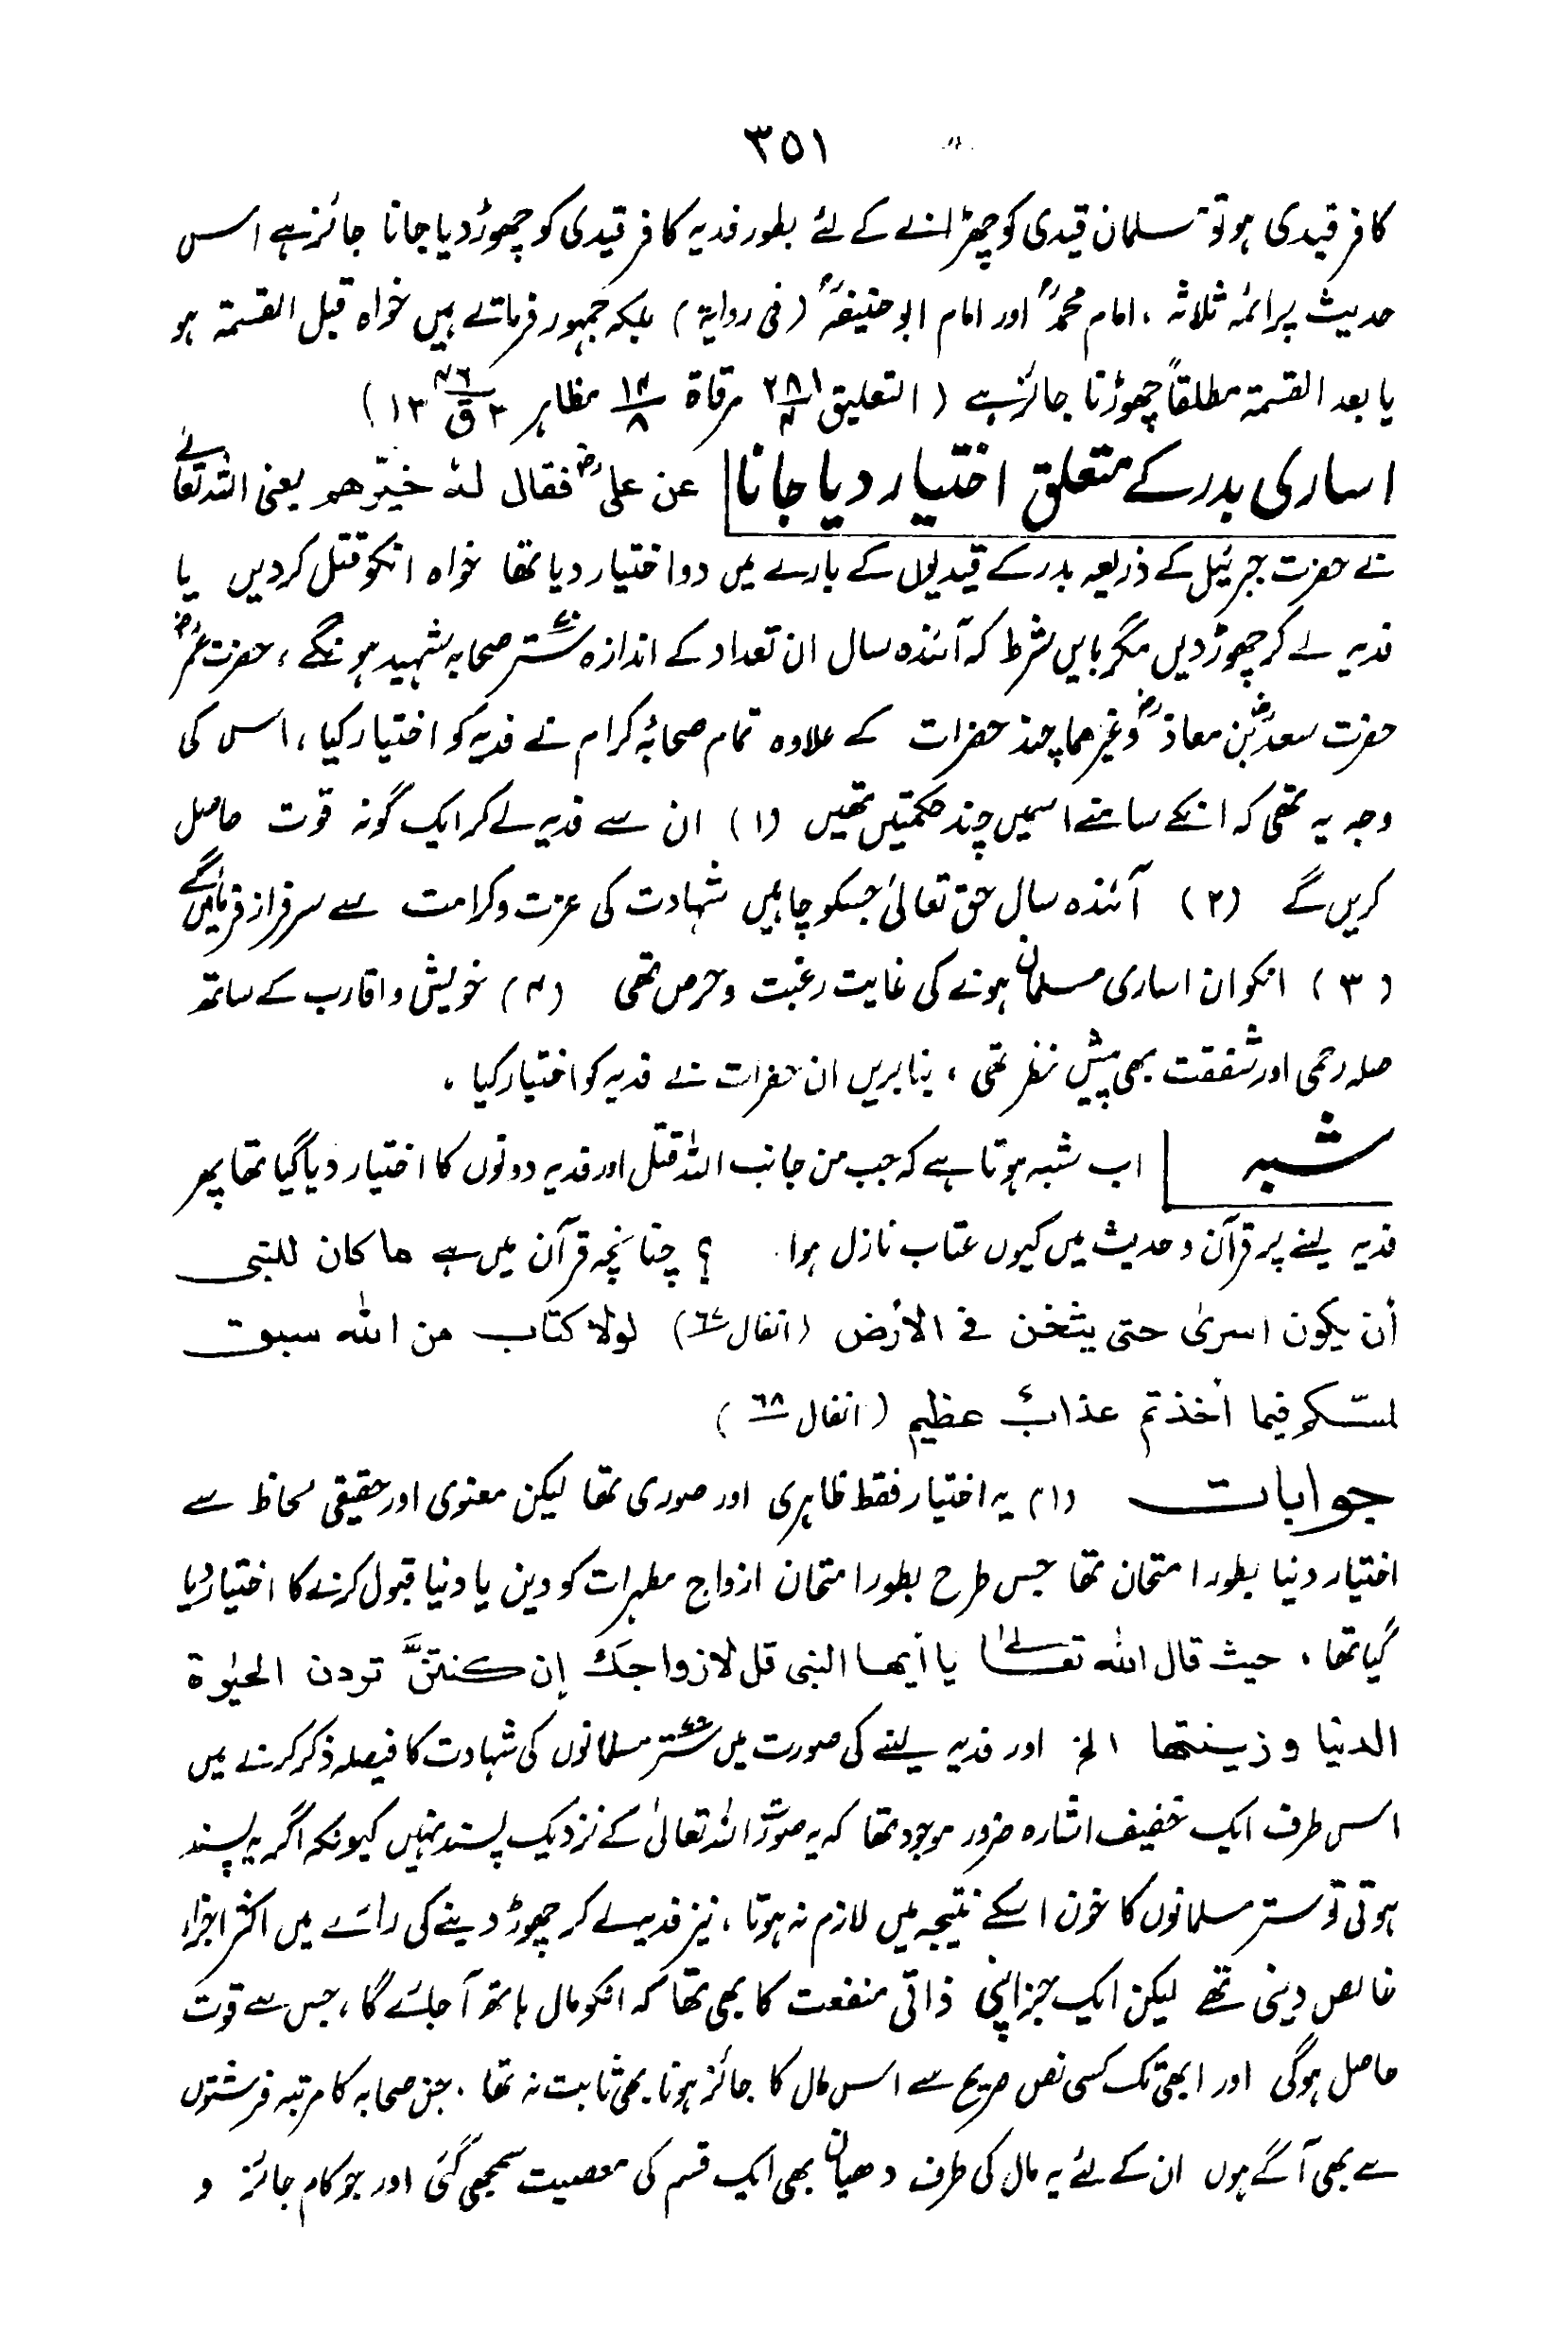 ۳۵۱
کافر قیدی ہو تو مسلمان قیدی کو چھڑانے کے لئے بطور فدیہ کافر قیدی کو چھوڑ دیا جانا جائز ہے اس
حدیث پر ائمہ ثلاثہ ، امام محمدؒ اور امام ابو حنیفہؒ (فی روایة) بلکہ جمہور فرماتے ہیں خواہ قبل القسمۃ ہو
یا بعد القسمۃ مطلقاً چھوڑنا جائز ہے (التعلیق ۲۸۱/۴ مرقاة ۱۴/۸ مظاہر ۴۶/۳ ق ۱۳)
اساری بدر کے متعلق اختیار دیا جانا عن علیؓ فقال لهٗ خیّرهم یعنی اللہ تعالےٰ
نے حضرت جبرئیل کے ذریعہ بدر کے قیدیوں کے بارے میں دو اختیار دیا تھا خواہ انکو قتل کر دیں یا
فدیہ لے کر چھوڑ دیں مگر بایں شرط کہ آئندہ سال ان تعداد کے اندازہ ستر۷۰ صحابہ شہید ہونگے ، حضرت عمرؓ
حضرت سعدؓ بن معاذؓ وغیرھما چند حضرات کے علاوہ تمام صحابۂ کرام نے فدیہ کو اختیار کیا ، اس کی
وجہ یہ تھی کہ انکے سامنے اسمیں چند حکمتیں تھیں (۱) ان سے فدیہ لے کر ایک گونہ قوت حاصل
کریں گے (۲) آئندہ سال حق تعالیٰ جسکو چاہیں شہادت کی عزت و کرامت سے سرفراز فرمائیں گے
(۳) انکو ان اساری مسلمان ہونے کی غایت رغبت و حرص تھی (۴) خویش و اقارب کے ساتھ
صلہ رحمی اور شفقت بھی پیش نظر تھی ، بنا بریں ان حضرات نے فدیہ کو اختیار کیا ۔
شبہ اب شبہ ہوتا ہے کہ جب من جانب اللہ قتل اور فدیہ دونوں کا اختیار دیا گیا تھا پھر
فدیہ لینے پر قرآن و حدیث میں کیوں عتاب نازل ہوا ؟ چنانچہ قرآن میں ہے ما کان للنبی
أن یکون اسریٰ حتی یثخن فی الأرض (انفال ۶۷) لولا کتاب من اللّٰه سبق
لمسّکم فیما أخذتم عذابٌ عظیم (انفال ۶۸)
جوابات (۱) یہ اختیار فقط ظاہری اور صوری تھا لیکن معنوی اور حقیقی لحاظ سے
اختیار دنیا بطور امتحان تھا جس طرح بطور امتحان ازواج مطہرات کو دین یا دنیا قبول کرنے کا اختیار دیا
گیا تھا ، حیث قال اللّٰه تعالےٰ یا أیها النبی قل لازواجك إن کنتنَّ تردن الحیٰوة
الدنیا و زینتها الخ اور فدیہ لینے کی صورت میں ستر۷۰ مسلمانوں کی شہادت کا فیصلہ ذکر کرنے میں
اس طرف ایک خفیف اشارہ ضرور موجود تھا کہ یہ صورت اللہ تعالیٰ کے نزدیک پسند نہیں کیونکہ اگر یہ پسند
ہوتی تو ستر مسلمانوں کا خون اسکے نتیجہ میں لازم نہ ہوتا ، نیز فدیہ لے کر چھوڑ دینے کی رائے میں اکثر اجزاء
خالص دینی تھے لیکن ایک جز اپنی ذاتی منفعت کا بھی تھا کہ انکو مال ہاتھ آ جائے گا ، جس سے قوت
حاصل ہوگی اور ابھی تک کسی نص صریح سے اس مال کا جائز ہونا بھی ثابت نہ تھا ۔ جن صحابہ کا مرتبہ فرشتوں
سے بھی آگے ہوں ان کے لئے یہ مال کی طرف دھیان بھی ایک قسم کی معصیت سمجھی گئی اور جو کام جائز و